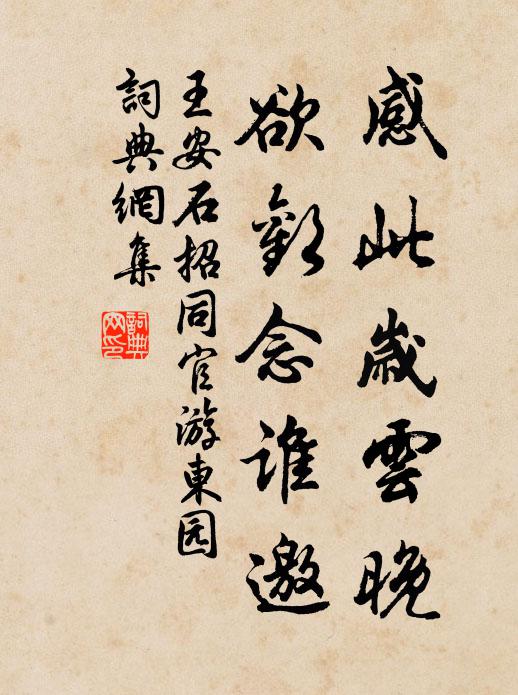 感此歲雲晚
欲歡念誰邀
王安石招同官游東园
詞典網集
詞典網印